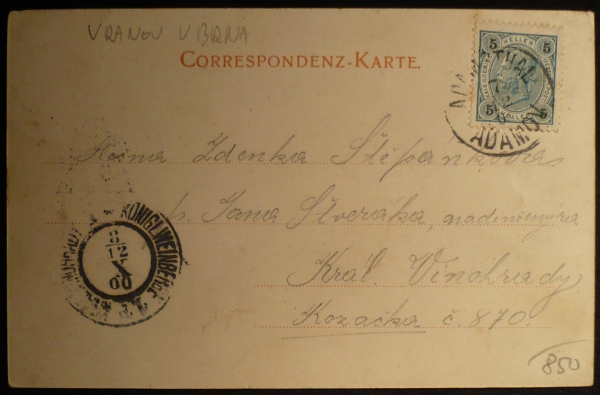 VRANOV U BRNA
CORRESPONDENZ-KARTE.
5 HELLER 5
5 HELLER 5
ADAMSTHAL
ADAMOV
Zdenka Štěpánkova
p. Jana Šťveráka, nadinženýra
Král. Vinohrady
Kozačka č. 870.
KÖNIGL. WEINBERGE
8
12
X
00
850